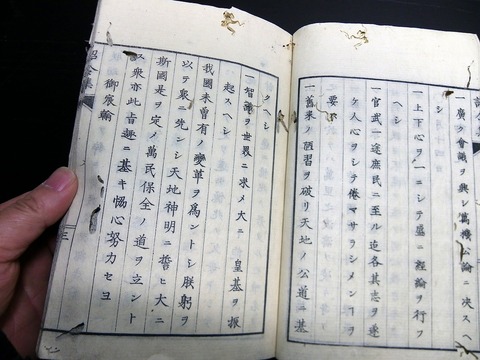 一廣ク會議ヲ興シ萬機公論ニ決スヘ
シ
一上下心ヲ一ニシテ盛ニ經論ヲ行フ
ヘシ
一官武一途庶民ニ至ル迄各其志ヲ遂
ケ人心ヲシテ倦マサラシメンヿヲ
要ス
一舊来ノ陋習ヲ破リ天地ノ公道ニ基
クヘシ
一智識ヲ世界ニ求メ大ニ 皇基ヲ振
起スヘシ
我國未曾有ノ變革ヲ為ントシ朕躬ヲ
以テ衆ニ先ンシ天地神明ニ誓ヒ大ニ
斯國是ヲ定メ萬民保全ノ道ヲ立ント
ス衆亦此旨趣ニ基キ恊心努力セヨ
御宸翰
三